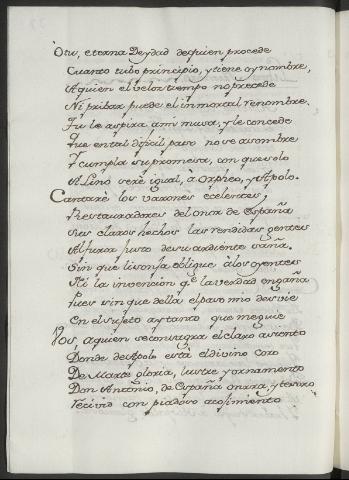 O tu, eterna Deydad de quien procede
Cuanto tubo principio, y tiene oy nombre,
A quien el veloz tiempo no precede
Ni pribar puede el inmortal renombre.
Tu le aspira a mi musa, y le concede
Que en tal dificil paso no se asombre
Y cumpla su promesa, con que solo
A Lino sere igual, à Orpheo, y Apolo.
Cantarè los varones ecelentes,
Restauradores del onor de España
Sus claros hechos las rendidas gentes
Al furor justo de su ardiente saña.
Sin que lisonja obligue à los oyentes
Ni la invencion qe. la verdad engaña
Pues sin que della el paso mio desvie
En el sujeto ay tanto que me guie
Vos, a quien se consagra el claro asiento
Donde de Apolo està el divino coro
De Marte gloria, lustre y ornamento
Don Antonio, de España onrra, y tesoro
Recivid con piadoso acojimiento